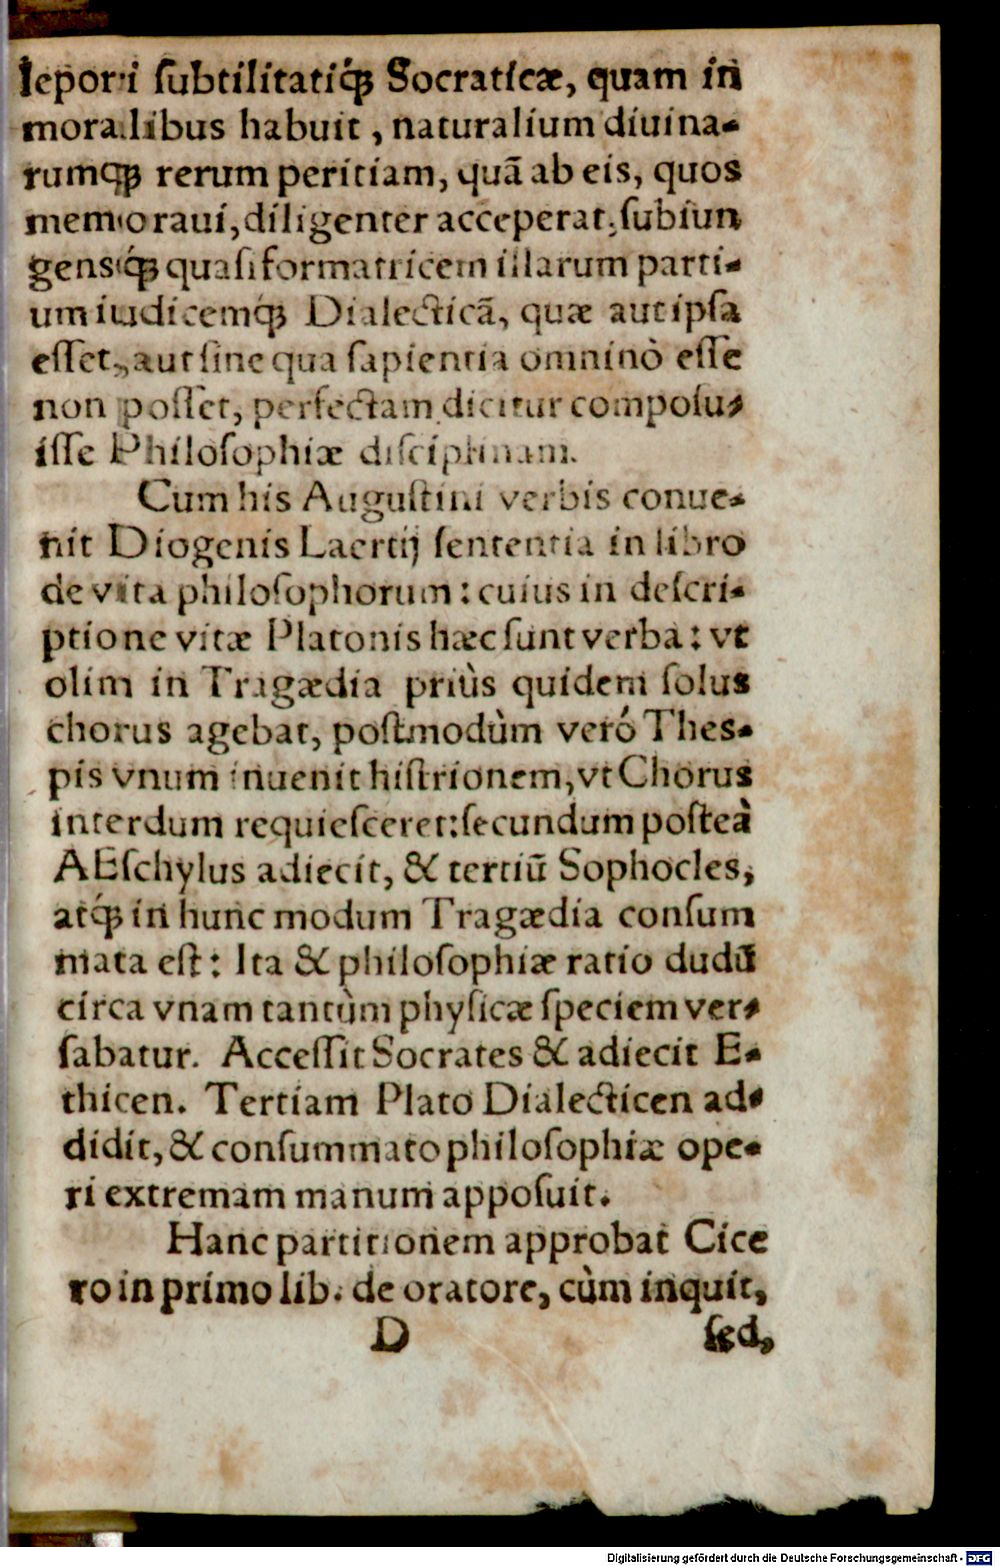 lepori ſubtilitatiq́ꝫ Socraticæ, quam in
moralibus habuit, naturalium diuina-
rumqꝫ rerum peritiam, quā ab eis, quos
memoraui, diligenter acceperat: ſubiun
gensq́ꝫ quaſi formatricem illarum parti-
um iudicemq́ꝫ Dialecticā, quæ aut ipſa
eſſet, aut ſine qua ſapientia omninò eſſe
non poſſet, perfectam dicitur compoſu-
iſſe Philoſophiæ diſciplinam.
Cum his Auguſtini verbis conue-
nit Diogenis Laertij ſententia in libro
de vita philoſophorum: cuius in deſcri-
ptione vitæ Platonis hæc ſunt verba: vt
olim in Tragædia priùs quidem ſolus
chorus agebat, poſtmodùm veró Theſ-
pis vnum inuenit hiſtrionem, vt Chorus
interdum requieſceret: ſecundum poſteà
AEſchylus adiecit, & tertiū Sophocles,
atq́ꝫ in hunc modum Tragædia conſum
mata eſt: Ita & philoſophiæ ratio dudū
circa vnam tantùm phyſicæ ſpeciem ver-
ſabatur. Acceſſit Socrates & adiecit E-
thicen. Tertiam Plato Dialecticen ad-
didit, & conſummato philoſophiæ ope-
ri extremam manum appoſuit.
Hanc partitionem approbat Cice
ro in primo lib. de oratore, cùm inquit,
D ſed,
Digitalisierung gefördert durch die Deutsche Forschungsgemeinschaft - DFG